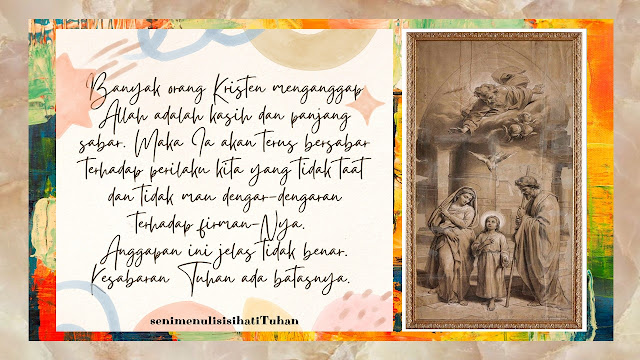 Banyak orang Kristen menganggap
Allah adalah kasih dan panjang
sabar. Maka Ia akan terus bersabar
terhadap perilaku kita yang tidak taat
dan tidak mau dengar-dengaran
terhadap firman-Nya.
Anggapan ini jelas tidak benar.
Kesabaran Tuhan ada batasnya.
senimenulisisihatiTuhan